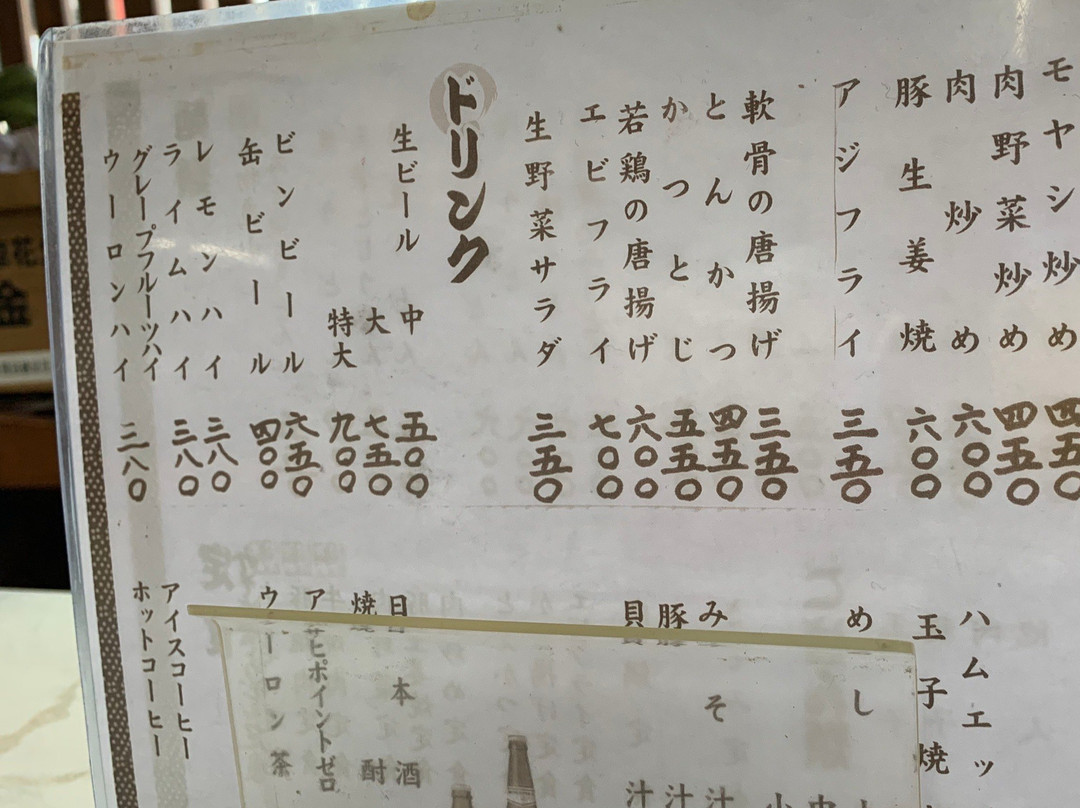 モヤシ炒め 四五〇
肉野菜炒め 四五〇
肉炒め 六〇〇
豚生姜焼 六〇〇
アジフライ 三五〇
軟骨の唐揚げ 三五〇
とんかつ 四五〇
かつとじ 五五〇
若鶏の唐揚げ 六〇〇
エビフライ 七〇〇
生野菜サラダ 三五〇
ドリンク
生ビール 中 五〇〇
大 七五〇
特大 九〇〇
ビンビール 六五〇
缶ビール 四〇〇
レモンハイ 三八〇
ライムハイ 三八〇
グレープフルーツハイ
ウーロンハイ 三八〇
ハムエッ
玉子焼
めし
みそ汁
豚汁
貝汁
日本酒
焼酎
アサヒポイントゼロ
ウーロン茶
アイスコーヒー
ホットコーヒー